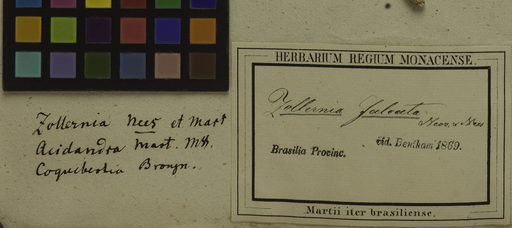 Zollernia Nees et Mart
Acidandra Mart. Mss.
Coquebertia Brongn.
HERBARIUM REGIUM MONACENSE.
Zollernia falcata
Neov. & Nees
vid. Bentham 1869.
Brasilia Provinc.
Martii iter brasiliense.